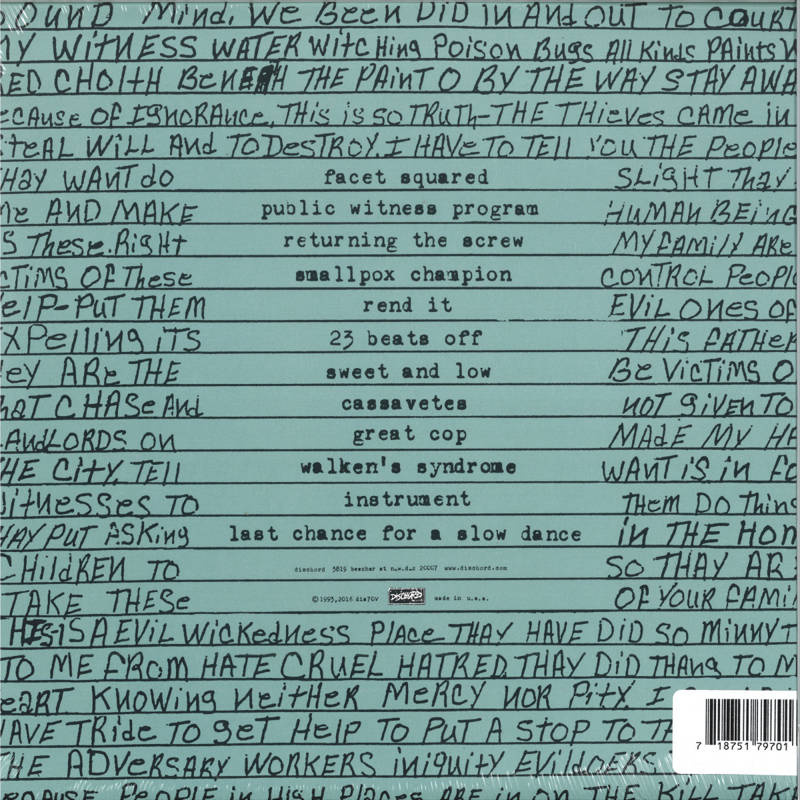 OUND MIND. WE BEEN DID IN ANd OUT TO COURT
MY WITNESS WATER WITCHING POISON BUGS ALL KINDS PAINTS
ED CHOLTH BENEATH THE PAINT O BY THE WAY STAY AWA
ECAUSE OF IGNORANCE. THIS IS SO TRUTH-THE THIEVES CAME IN
TEAL WILL AND TO DESTROY. I HAVE TO TELL YOU THE PEOPLE
HAY WANT dO facet squared SLIGHT THAY
ME AND MAKE public witness program HUMAN BEING
S THESE. RIGHT returning the screw MY FAMILY ARE
CTIMS OF THESE smallpox champion CONTROL PEOPL
ELP-PUT THEM rend it EVIL ONES OF
XPELLING ITS 23 beats off THIS FATHER
EY ARE THE sweet and low BE VICTIMS O
HAT CHASE AND cassavetes NOT GIVEN TO
ANdLORDS ON great cop MADE MY HA
HE CITY. TELL walken's syndrome WANT IS IN FO
ITNESSES TO instrument THEM DO THING
HAY PUT ASKING last chance for a slow dance IN THE HOM
CHILDREN TO dischord 3819 beecher st n.w.d.c 20007 www.dischord.com SO THAY AR
TAKE THESE ©1993,2016 dis70V DISCHORD made in u.s.a. OF YOUR FAMI
THIS IS A EVIL WICKEDNESS PLACE THAY HAVE DID SO MINNY T
TO ME FROM HATE CRUEL HATRED. THAY DID THANG TO M
EART KNOWING NEITHER MERCY NOR PITY. I
AVE TRIdE TO GET HELP TO PUT A STOP TO TH
THE ADVERSARY WORKERS INIQUITY EVILdOERS
ECAUSE PEOPLE IN HIGH PLACES ARE IN ON THE KILL TAKE
7 18751 79701